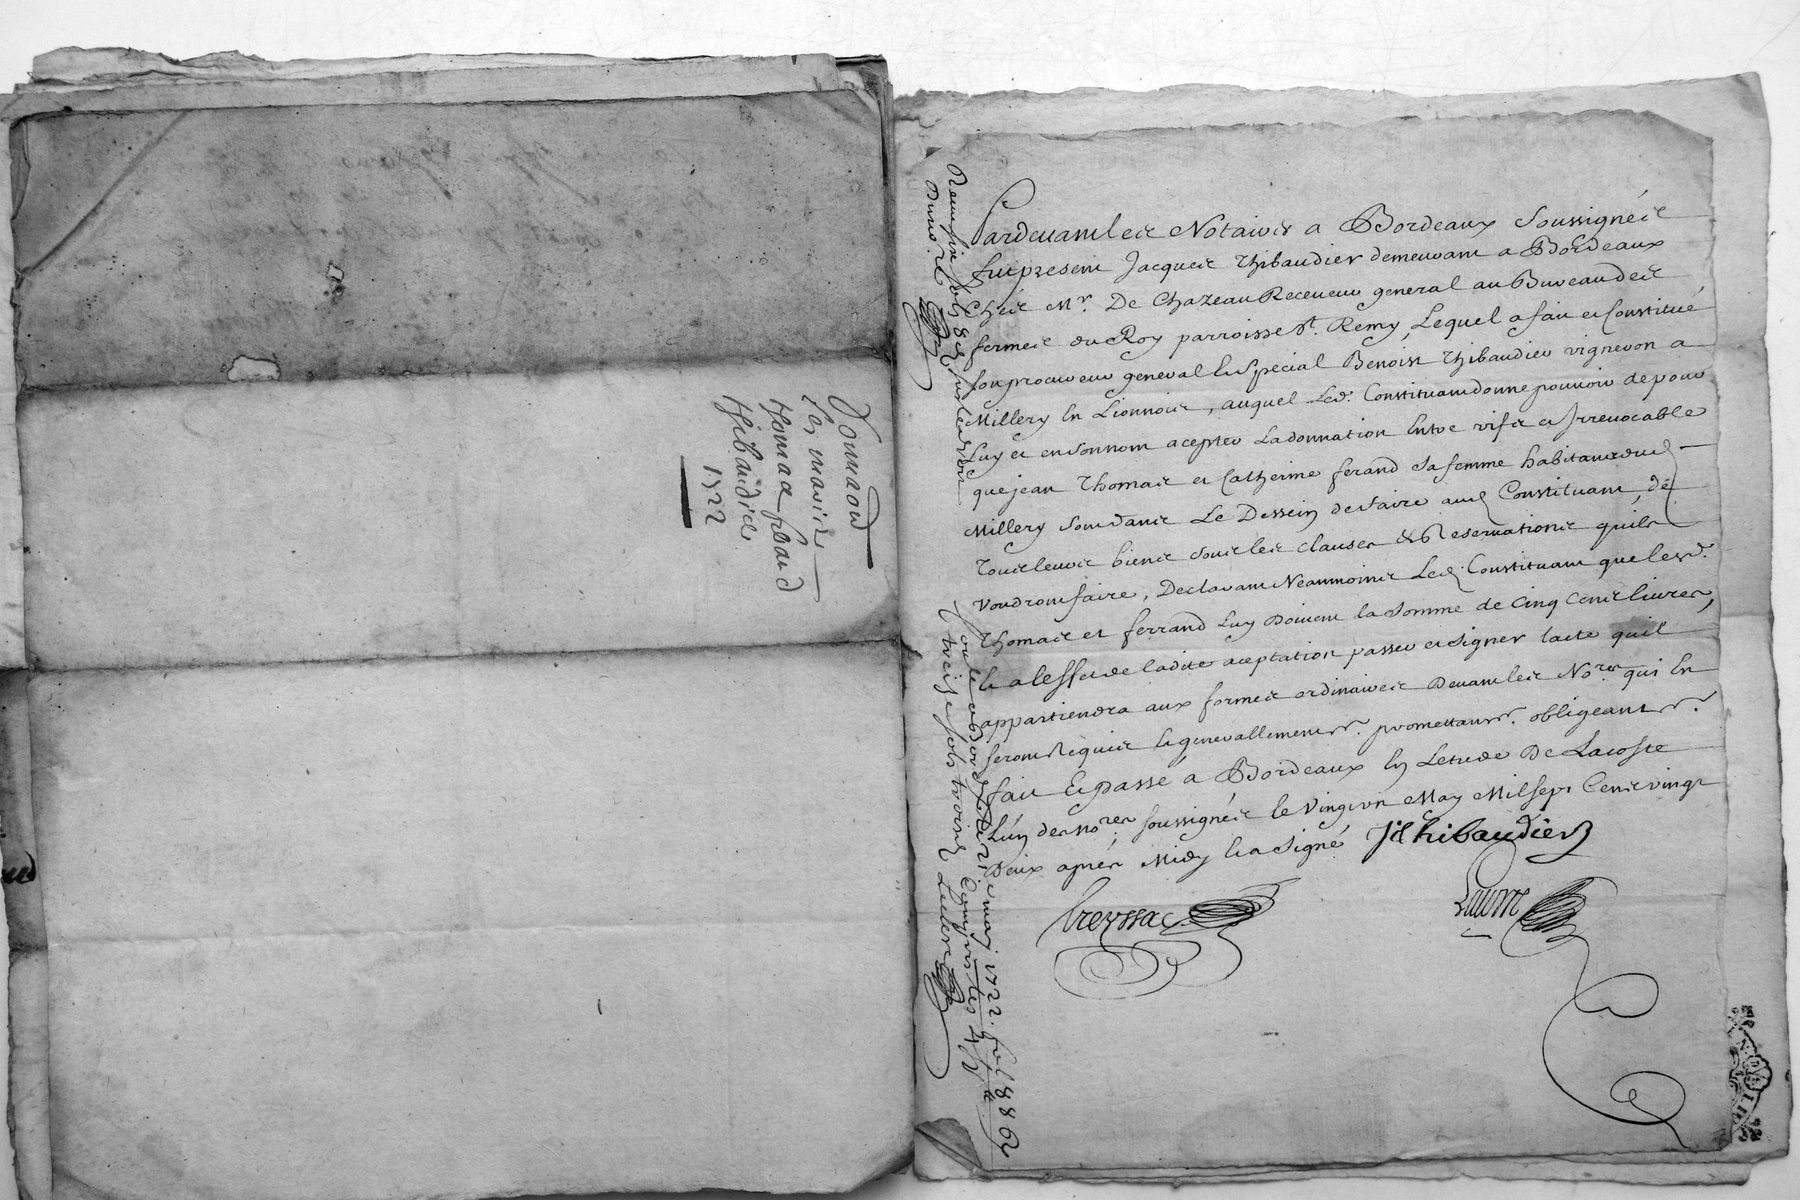 Donnaon
Thomaa feraud
Thibaudier
1722
Pardeuant les Notaires a Bordeaux Soussignés
fut present Jacques Thibaudier demeurant a Bordeaux
Chés Mr. De Chazeau Receueur general au Bureau des
fermes du Roy parroisse St. Remy, Lequel a fait et Constitué
son procureur general et Special Benoist Thibaudier vigneron a
Millery En Lionnois, auquel Led. Constituant donne pouvoir de pour
Luy et en son nom acepter La donnation Entre vifs et Irreuocable
que jean Thomas et Catherine ferand sa femme habitans dud.
Millery Sont dans Le Dessein de faire aud. Constituant, de
Tous leurs biens Sous les clauses & Reservations quils
Voudront faire, Declarant Neanmoins Led. Constituant que lesd.
Thomas et ferrand Luy Doivent la Somme de Cinq Cens liures,
Et a lesfet de ladite aceptation passer et Signer lacte quil
appartiendra aux formes ordinaires Deuant les Nores qui En
seront Requis Et generallement &. promettant &. obligeant &.
fait Et passé a Bordeaux En Letude De Lacoste
Lún des nores soussignés le Vingt un May Mil sept Cens vingt
Deux aprés Midy Et a Signé JThibaudier
Treyssac